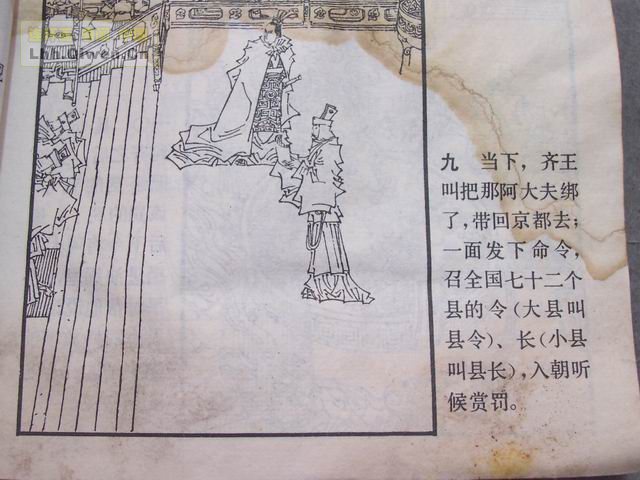 九　当下，齐王
叫把那阿大夫绑
了，带回京都去；
一面发下命令，
召全国七十二个
县的令（大县叫
县令）、长（小县
叫县长），入朝听
候赏罚。